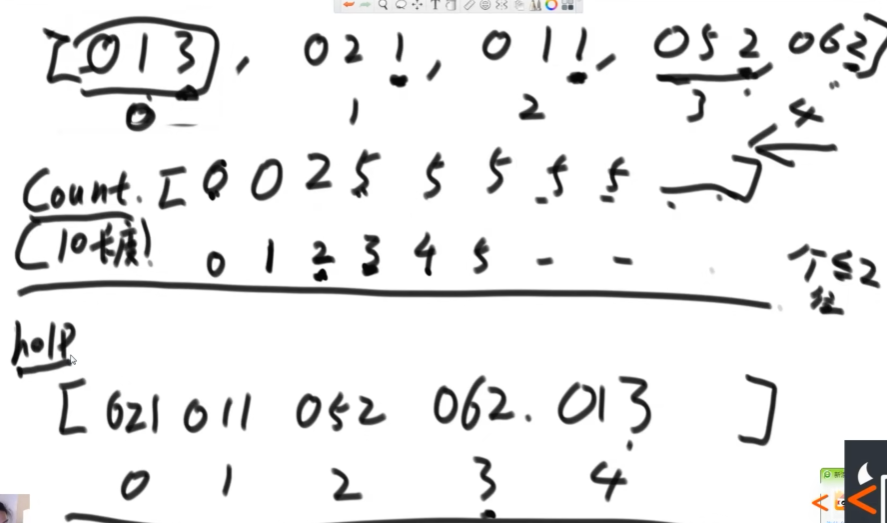 [013, 021, 011, 052, 062]
0 1 2 3 4
Count. [0 0 2 5 5 5 5 5 ]
(10长度) 0 1 2 3 4 5 - -
个≤2
help
[621 011 052 062. 013 ]
0 1 2 3 4